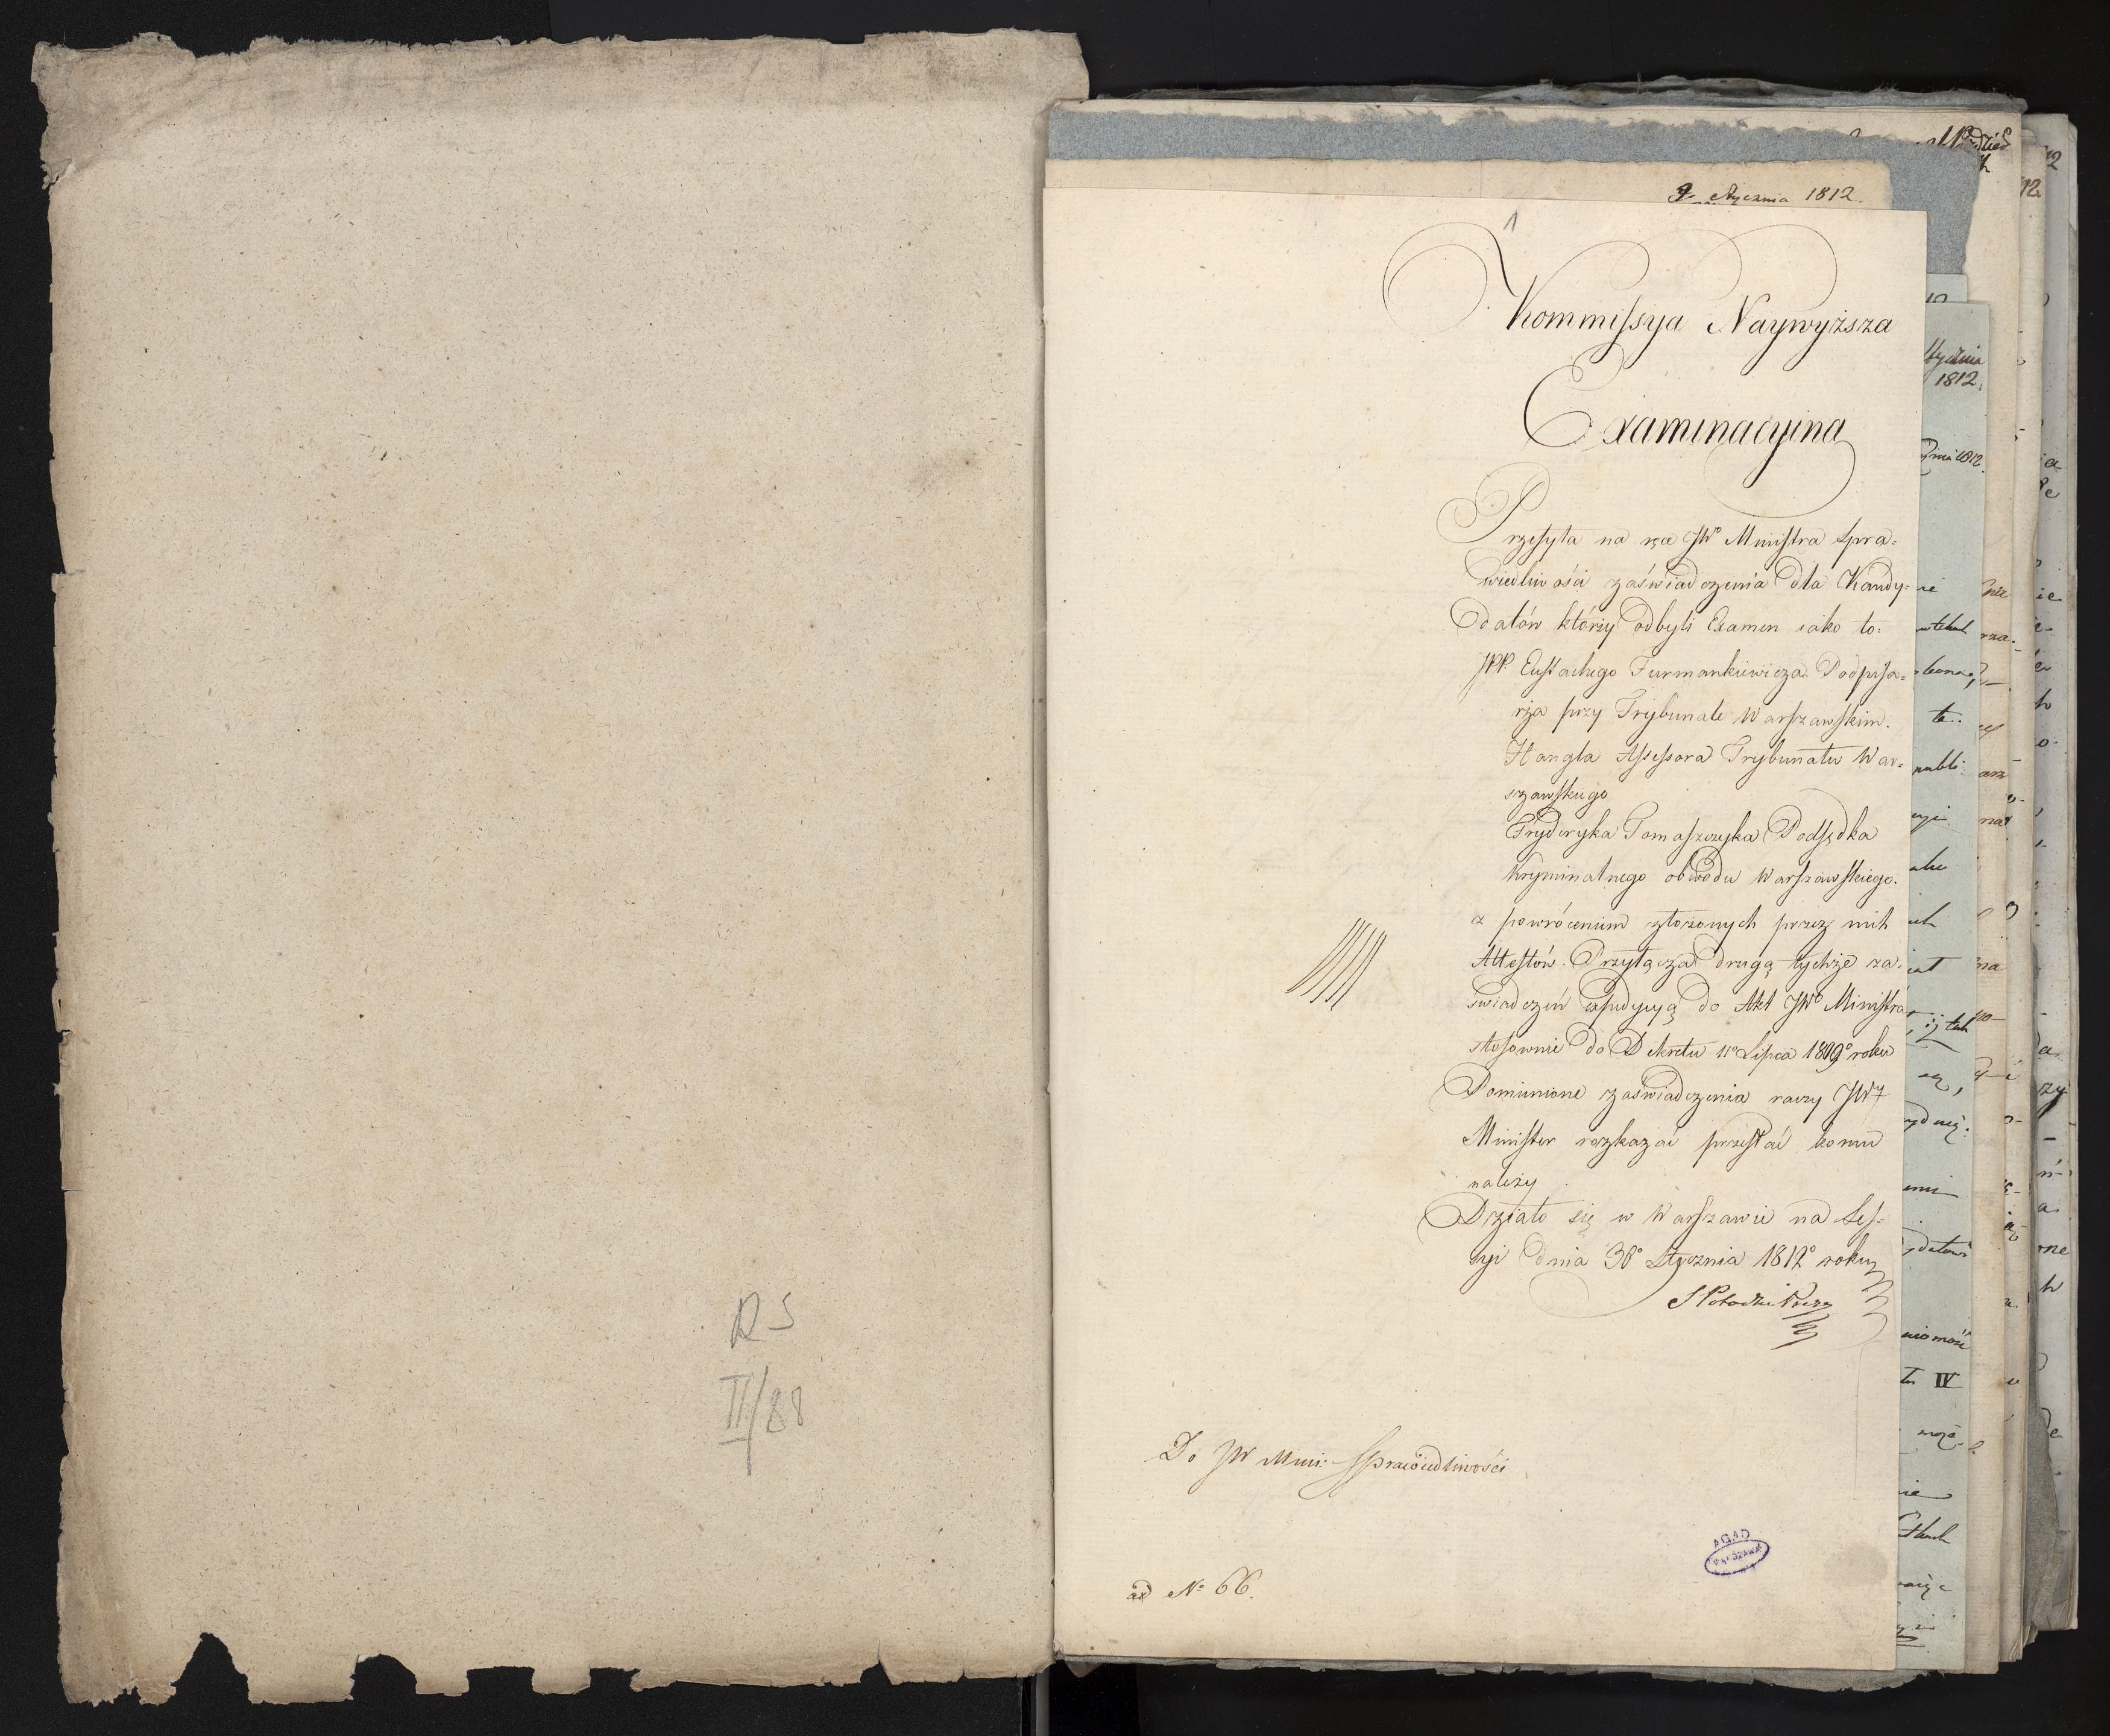 RS
II/88
9 Stycznia 1812.
1
Kommissya Naywyższa
Examinacyina
Przesyła na ręce JWo Ministra Spra-
wiedliwości zaświadczenia dla Kandy-
datów którzy odbyli Examen iako to:
JPP. Eustachego Furmankiewicza Podpisa-
rza przy Trybunale Warszawskim.
Hangla Assessora Trybunału War-
szawskiego
Fryderyka Tomaszezyka Podsędka
Kryminalnego obwodu Warszawskiego.
z powróceniem złożonych przez nich
Attestów. Przyłącza drugą tychże za-
świadczeń expedycyą do Akt JWo Ministra
stosownie do Dekretu 11o Lipca 1809o roku
Pomienione zaświadczenia raczy JWy
Minister rozkazać przesłać komu
należy
Działo się w Warszawie na Ses-
syi dnia 30o Stycznia 1812o roku
S Potocki Prezes
Do JW Mini: Sprawiedliwości
ad No 66.
AGAD
WARSZAWA
Stycznia
1812.
1812.
publi
te
IV